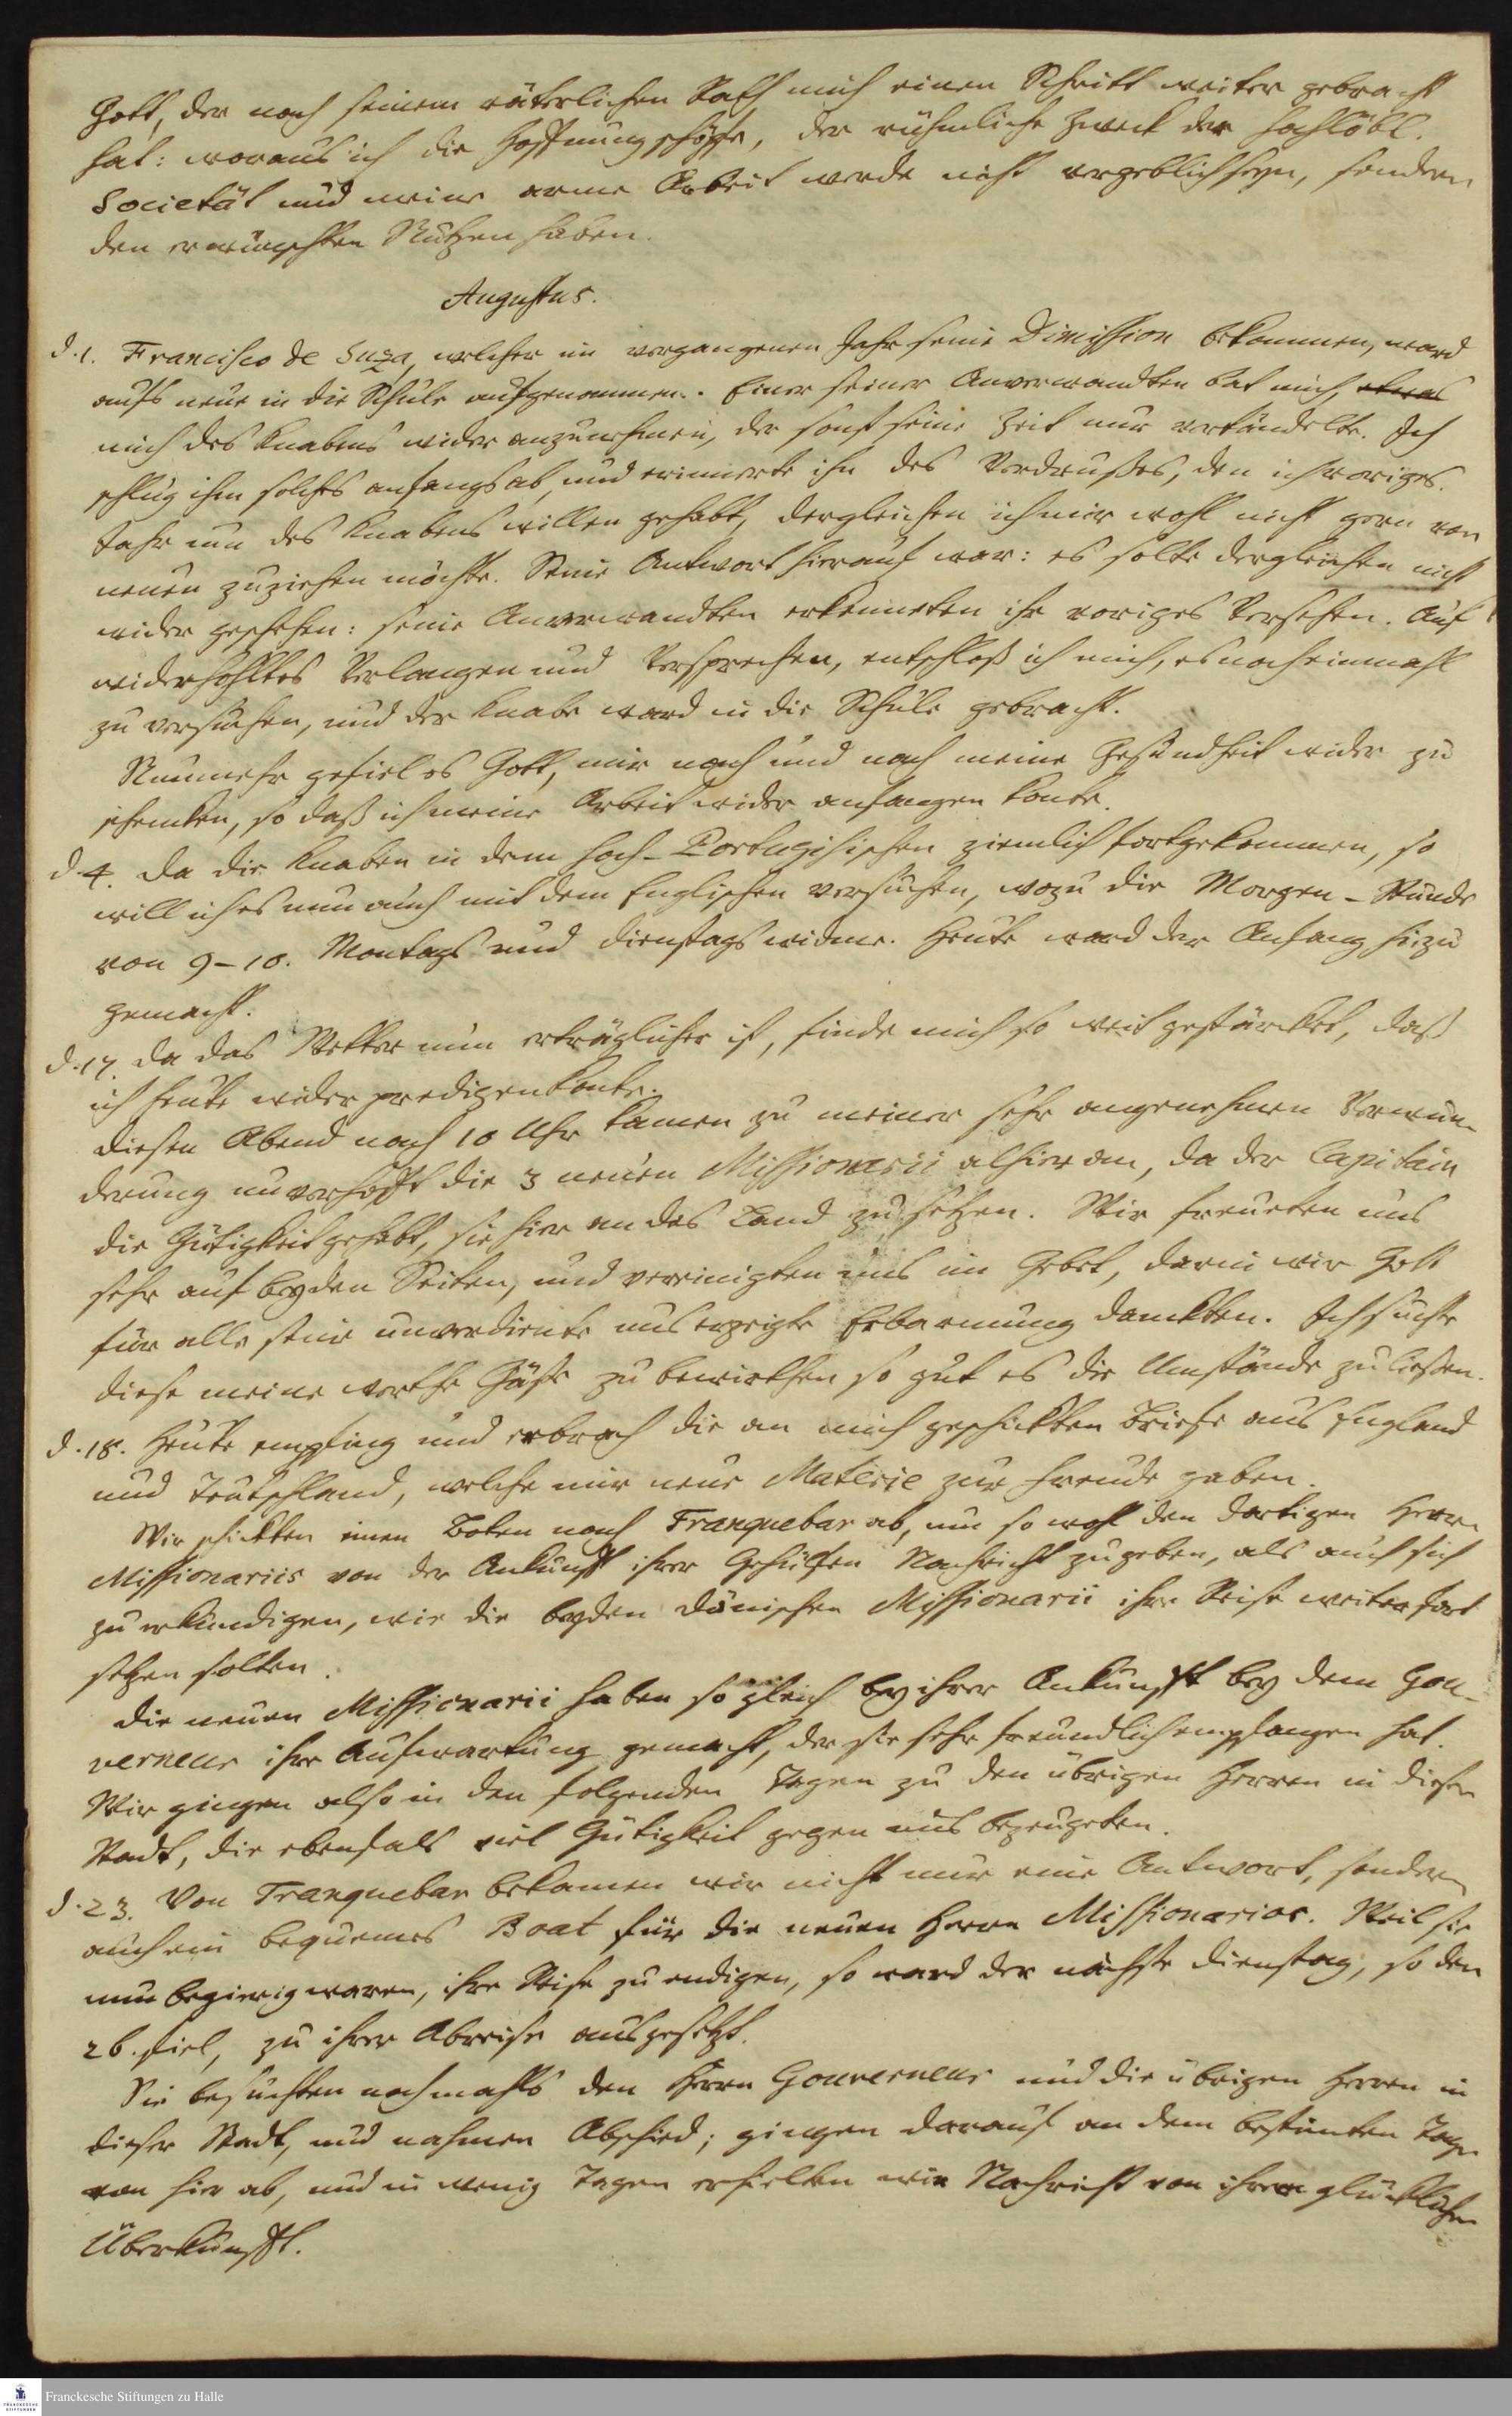 Gott, der nach seinem väterlichen Rath mich einen Schritt weiter gebracht
hat: woraus ich die Hoffnung schöpfe, der rühmliche Zweck der Hochlöbl.
Societät und meine arme Arbeit werde nicht vergeblich seyn, sondern
den erwünschten Nutzen haben.
Augustus.
d. 1. Francisco de Suza, welcher im vergangenen Jahr seine Dimission bekommen, ward
aufs neue in die Schule aufgenommen. Einer seiner Anverwandten bat mich, etwas
mich des Knabens wider anzunehmen, der sonst seine Zeit nur vertändelte. Ich
schlug ihm solches anfangs ab, und erinnerte ihn des Verdrußes, den ich voriges
Jahr um des Knabens willen gehabt, dergleichen ich mir wohl nicht gern von
neuen zuziehen möchte. Seine Antwort hierauf war: es solte dergleichen nicht
wider geschehen: seine Anverwandten erkenneten ihr voriges Versehen. Auf
widerhohltes Verlangen und Versprechen, entschloß ich mich, es noch einmahl
zu versuchen, und der Knabe ward in die Schule gebracht.
Nunmehr gefiel es Gott, mir nach und nach meine Gesundheit wider zu
schencken, so daß ich meine Arbeit wider anfangen konte.
d. 4. Da die Knaben in dem Hoch-Portugisischen ziemlich fortgekommen, so
will ich es nun auch mit dem Englischen versuchen, wozu die Morgen-Stunde
von 9-10. Montags und Dienstags widme. Heute ward der Anfang hiezu
gemacht.
d. 17. Da das Wetter nun erträglicher ist, finde mich so weit gestärcket, daß
ich heute wider predigen konte.
Diesen Abend nach 10 Uhr kamen zu meiner sehr angenehmen Verwun-
derung unverhofft die 3 neuen Missionarii alhier an, da der Capitain
die Gütigkeit gehabt, sie hier an das Land zu setzen. Wir freueten uns
sehr auf beyden Seiten, und vereinigten uns im Gebet, darin wir Gott
für alle seine unverdiente uns erzeigte Erbarmung danckten. Ich suchte
diese meine werthe Gäste zu bewirthen so gut es die Umstände zuließen.
d. 18. Heute empfing und erbrach die an mich geschickten Briefe aus England
und Teutschland, welche mir neue Materie zur Freude gaben.
Wir schickten einen Boten nach Tranquebar ab, um so wohl den dortigen Herrn
Missionariis von der Ankunfft ihrer Gehülfen Nachricht zugeben, als auch sich
zu erkundigen, wie die beyden dänischen Missionarii ihre Reise weiter fort
setzen solten.
Die neuen Missionarii haben so gleich bey ihrer Ankunfft bey dem Gou-
verneur ihre Aufwartung gemacht, der sie sehr freundlich empfangen hat.
Wir gingen also in den folgenden Tagen zu den übrigen Herren in dieser
Stadt, die ebenfals viel Gütigkeit gegen uns bezeugeten.
d. 23. Von Tranquebar bekamen wir nicht nur eine Antwort, sondern
auch ein bequemes Boat für die neuen Herrn Missionarios. Weil sie
nun begierig waren, ihre Reise zu endigen, so ward der nächste Dienstag, so den
26. fiel, zu ihrer Abreise ausgesetzt.
Sie besuchten nochmahls den Herrn Gouverneur und die übrigen Herren in
dieser Stadt, und nahmen Abschied; gingen darauf an dem bestimten Tage
von hier ab, und in wenig Tagen erhielten wir Nachricht von ihrer glücklichen
Überkunfft.
Franckesche Stiftungen zu Halle